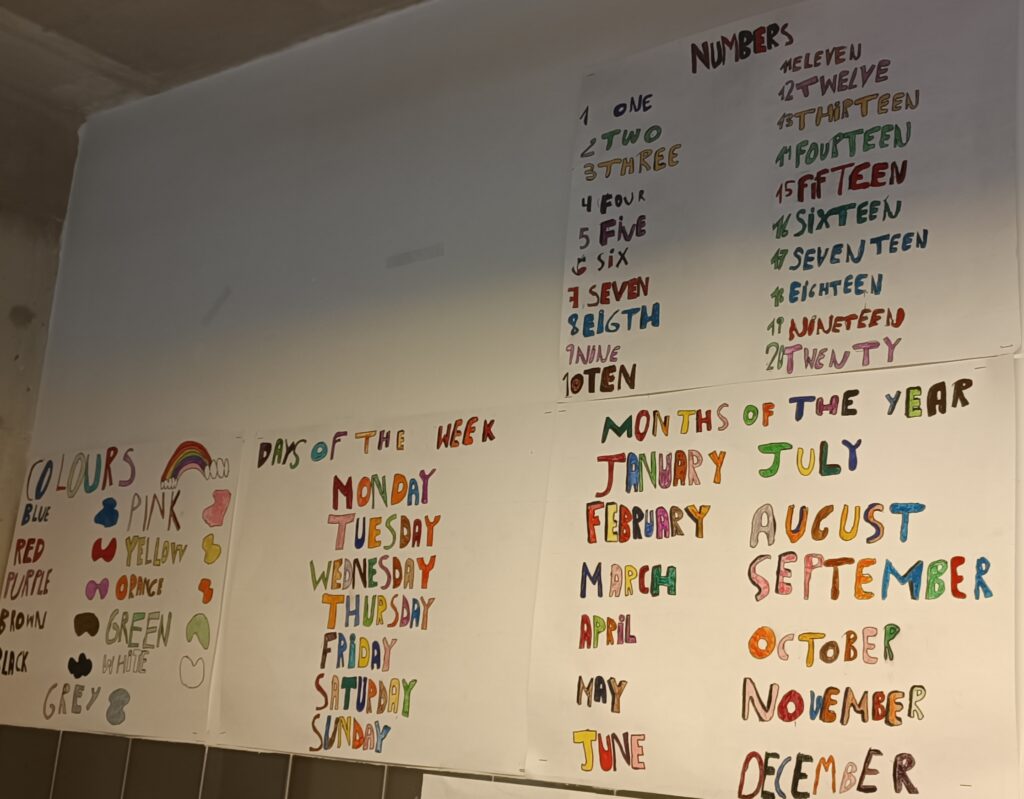 NUMBERS
1 ONE
2 TWO
3 THREE
4 FOUR
5 FIVE
6 SIX
7 SEVEN
8 EIGTH
9 NINE
10 TEN
11 ELEVEN
12 TWELVE
13 THIRTEEN
14 FOURTEEN
15 FIFTEEN
16 SIXTEEN
17 SEVENTEEN
18 EIGHTEEN
19 NINETEEN
20 TWENTY
COLOURS
BLUE PINK
RED YELLOW
PURPLE ORANGE
BROWN GREEN
BLACK WHITE
GREY
DAYS OF THE WEEK
MONDAY
TUESDAY
WEDNESDAY
THURSDAY
FRIDAY
SATURDAY
SUNDAY
MONTHS OF THE YEAR
JANUARY
FEBRUARY
MARCH
APRIL
MAY
JUNE
JULY
AUGUST
SEPTEMBER
OCTOBER
NOVEMBER
DECEMBER